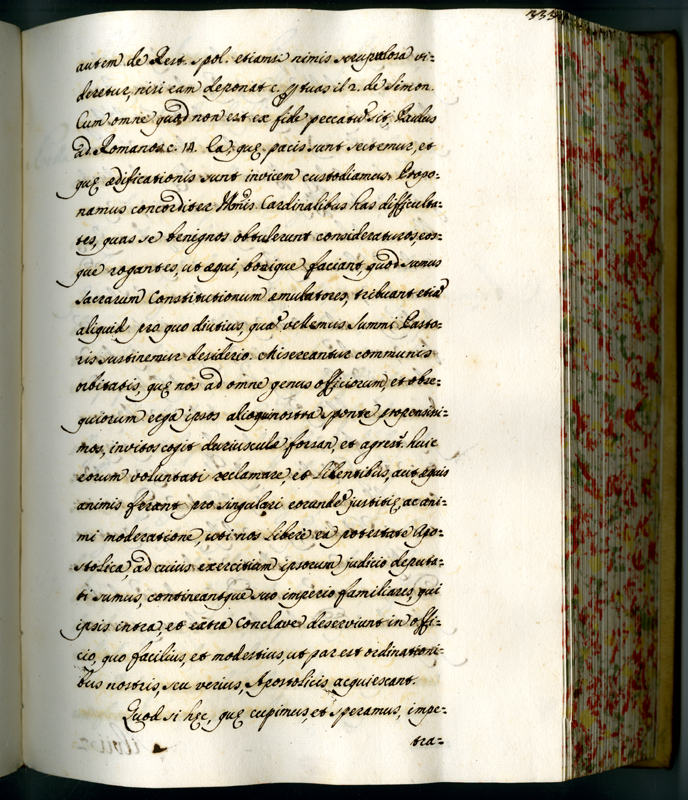 339
autem de Rest. spol. etiamsi nimis scrupulosa vi=
deretur, nisi eam deponat c. tuas il 2. de Simon.
Cum omne quod non est ex fide peccatũ sit, Paulus
ad Romanos c. 14. Ea, quę pacis sunt sectemur, et
quę ædificationis sunt invicem custodiamus. Propo=
namus concorditer Cardinalibus has difficulta=
tes, quas se benignos obtulerunt consideraturos, eos=
que rogantes, ut æqui, bonique faciant, quod sumus
sacrarum Constitutionum emulatores, tribuant etiã
aliquid pro quo diutius, quã vellemus Summi Pasto=
ris sustinemur desiderio. Misereantur communis
orbitatis, quę nos ad omne genus officiorum, et obse=
quiorum erga ipsos alioqui nostra sponte propensissi=
mos, invitos cogit duriuscule forsan, et agrest. huic
eorum voluntati reclamare, et libentibus, aut æquis
animis ferant pro singulari eorundẽ justitię, ac ani=
mi moderatione, uti nos liberè ea potestate Apo=
stolica, ad cuius exercitium ipsorum judicio deputa=
ti sumus, contineantque suo imperio familiares, qui
ipsis intra, et extra Conclave deserviunt in offi=
cio, quo facilius, et modestius, ut par est ordinationi=
bus nostris, seu verius, Apostolicis acquiescant.
Quod si hęc, quę cupimus, et speramus, impe=
tra=